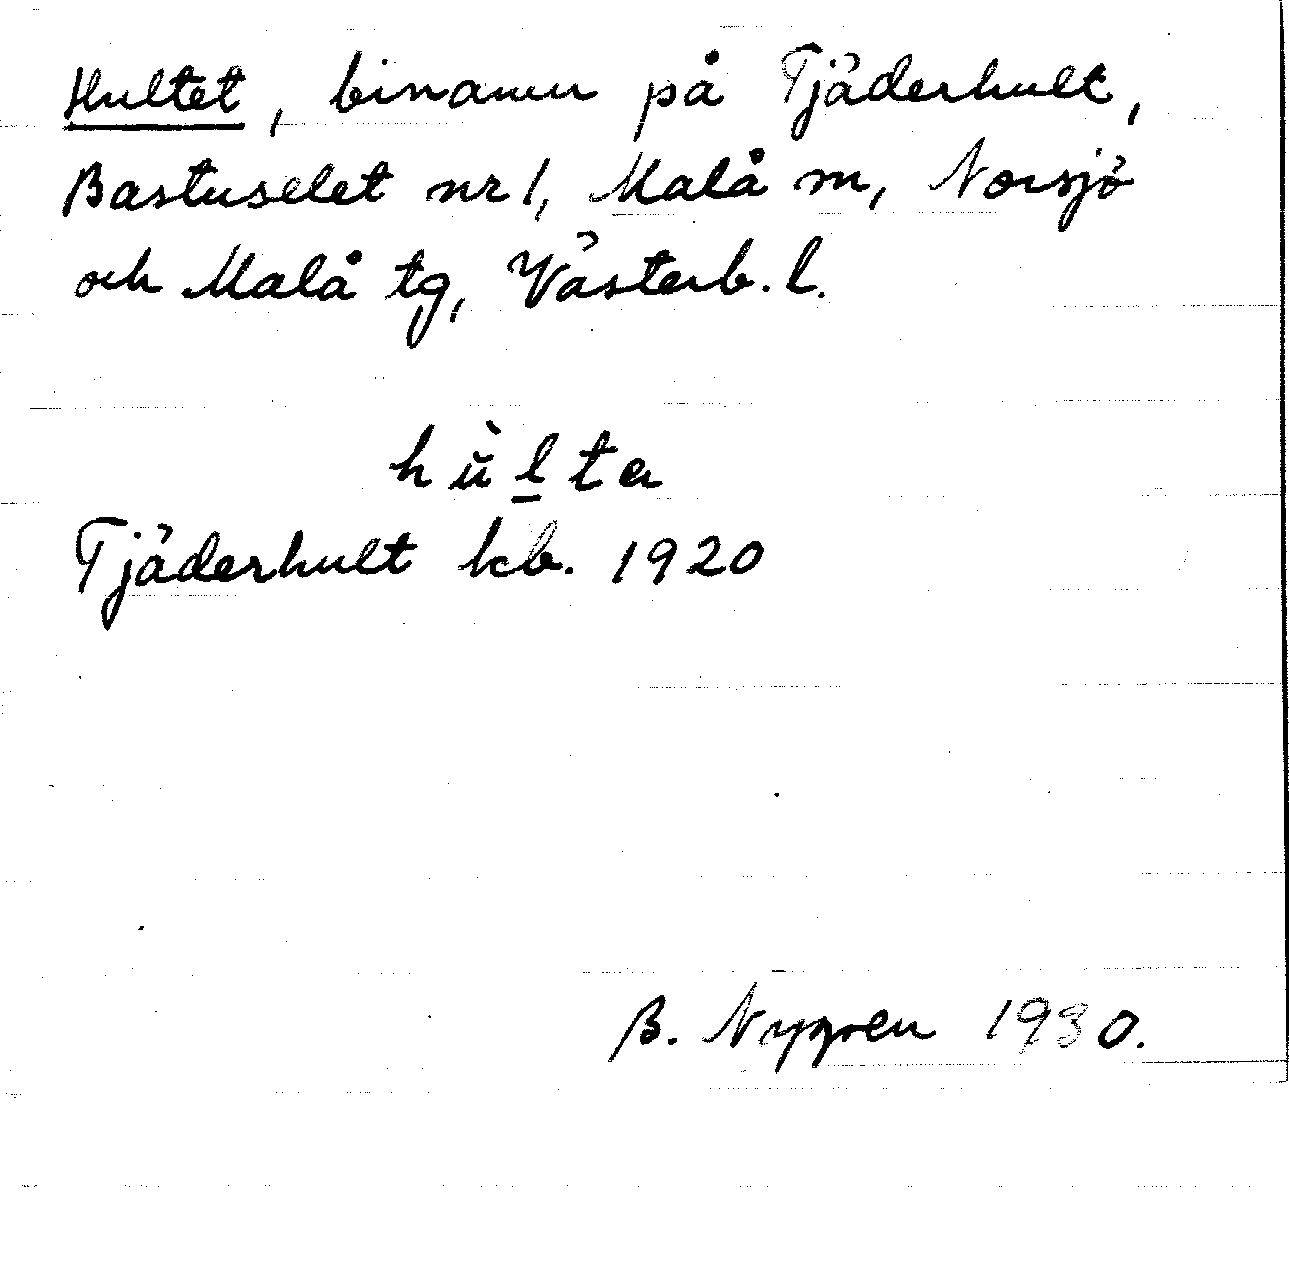 Hultet, binamn på Tjäderhult,
Bastuselet nr 1, Malå m, Norsjö
och Malå tg, Västerb. l.
hùlta
Tjäderhult kb. 1920
B. Nygren 1930.